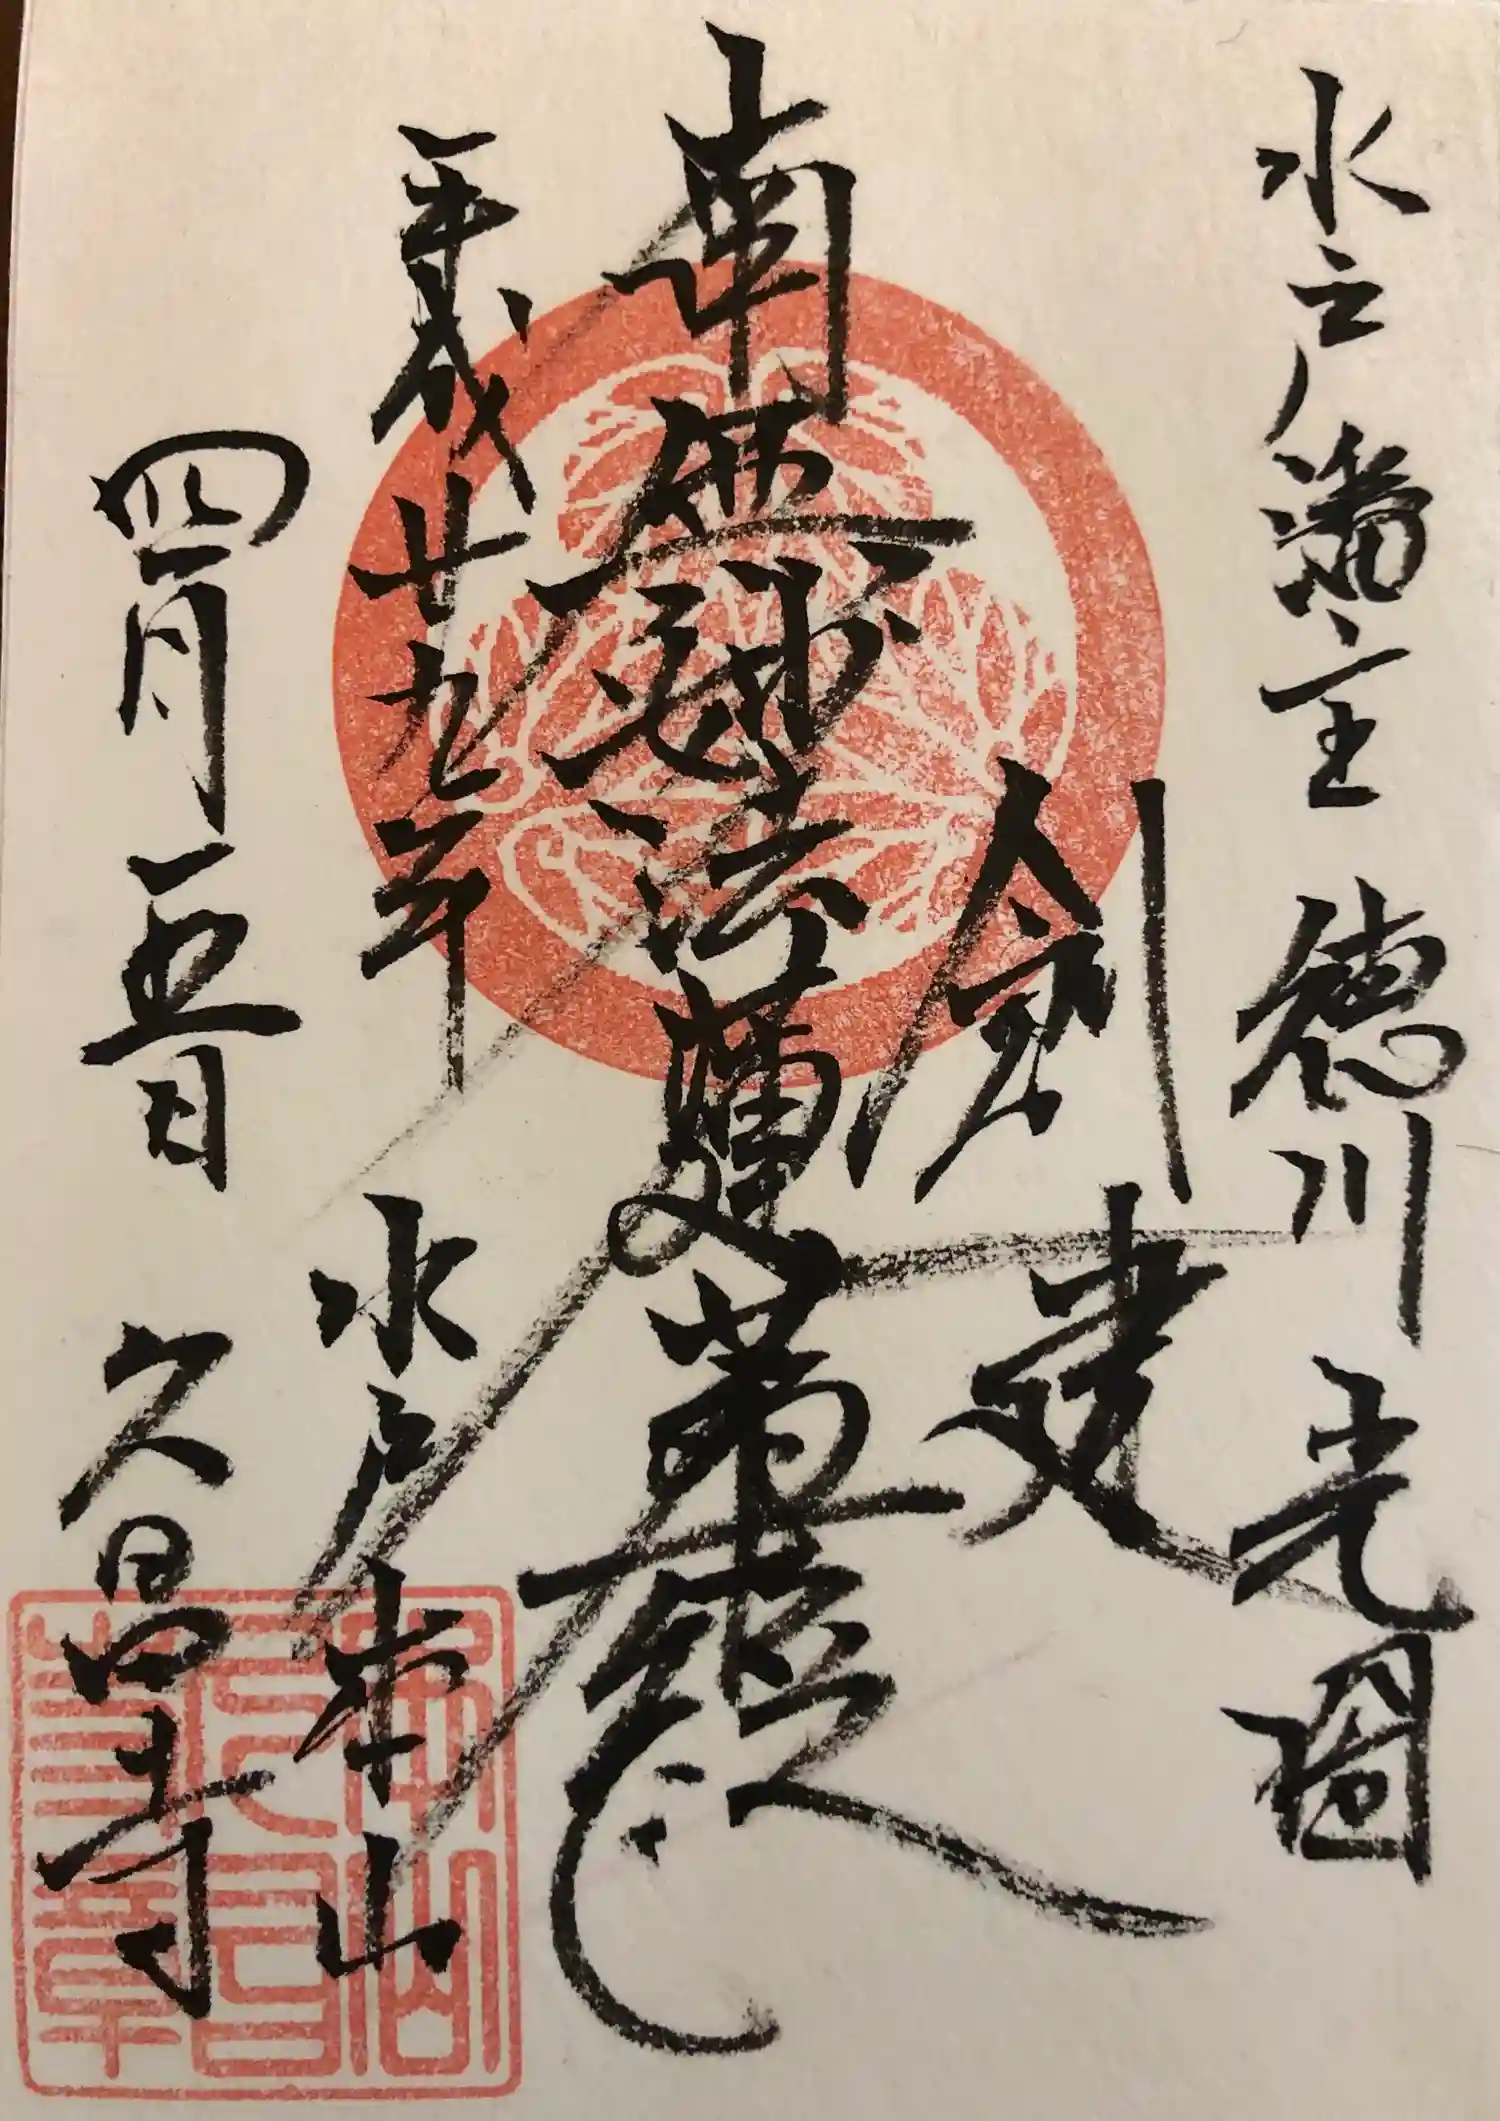 水戸藩主 徳川光圀
創建
南無妙法蓮華経
平成廿九年
水戸本山
四月五日
久昌寺